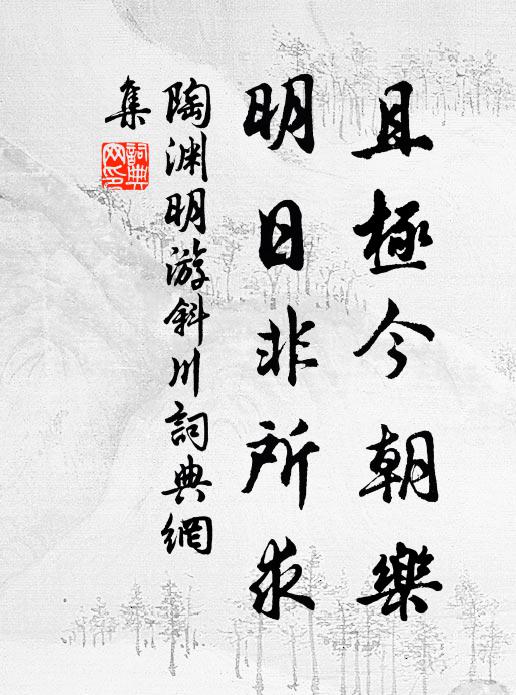 且極今朝樂
明日非所求
陶淵明游斜川詞典網
集
詞典
网印